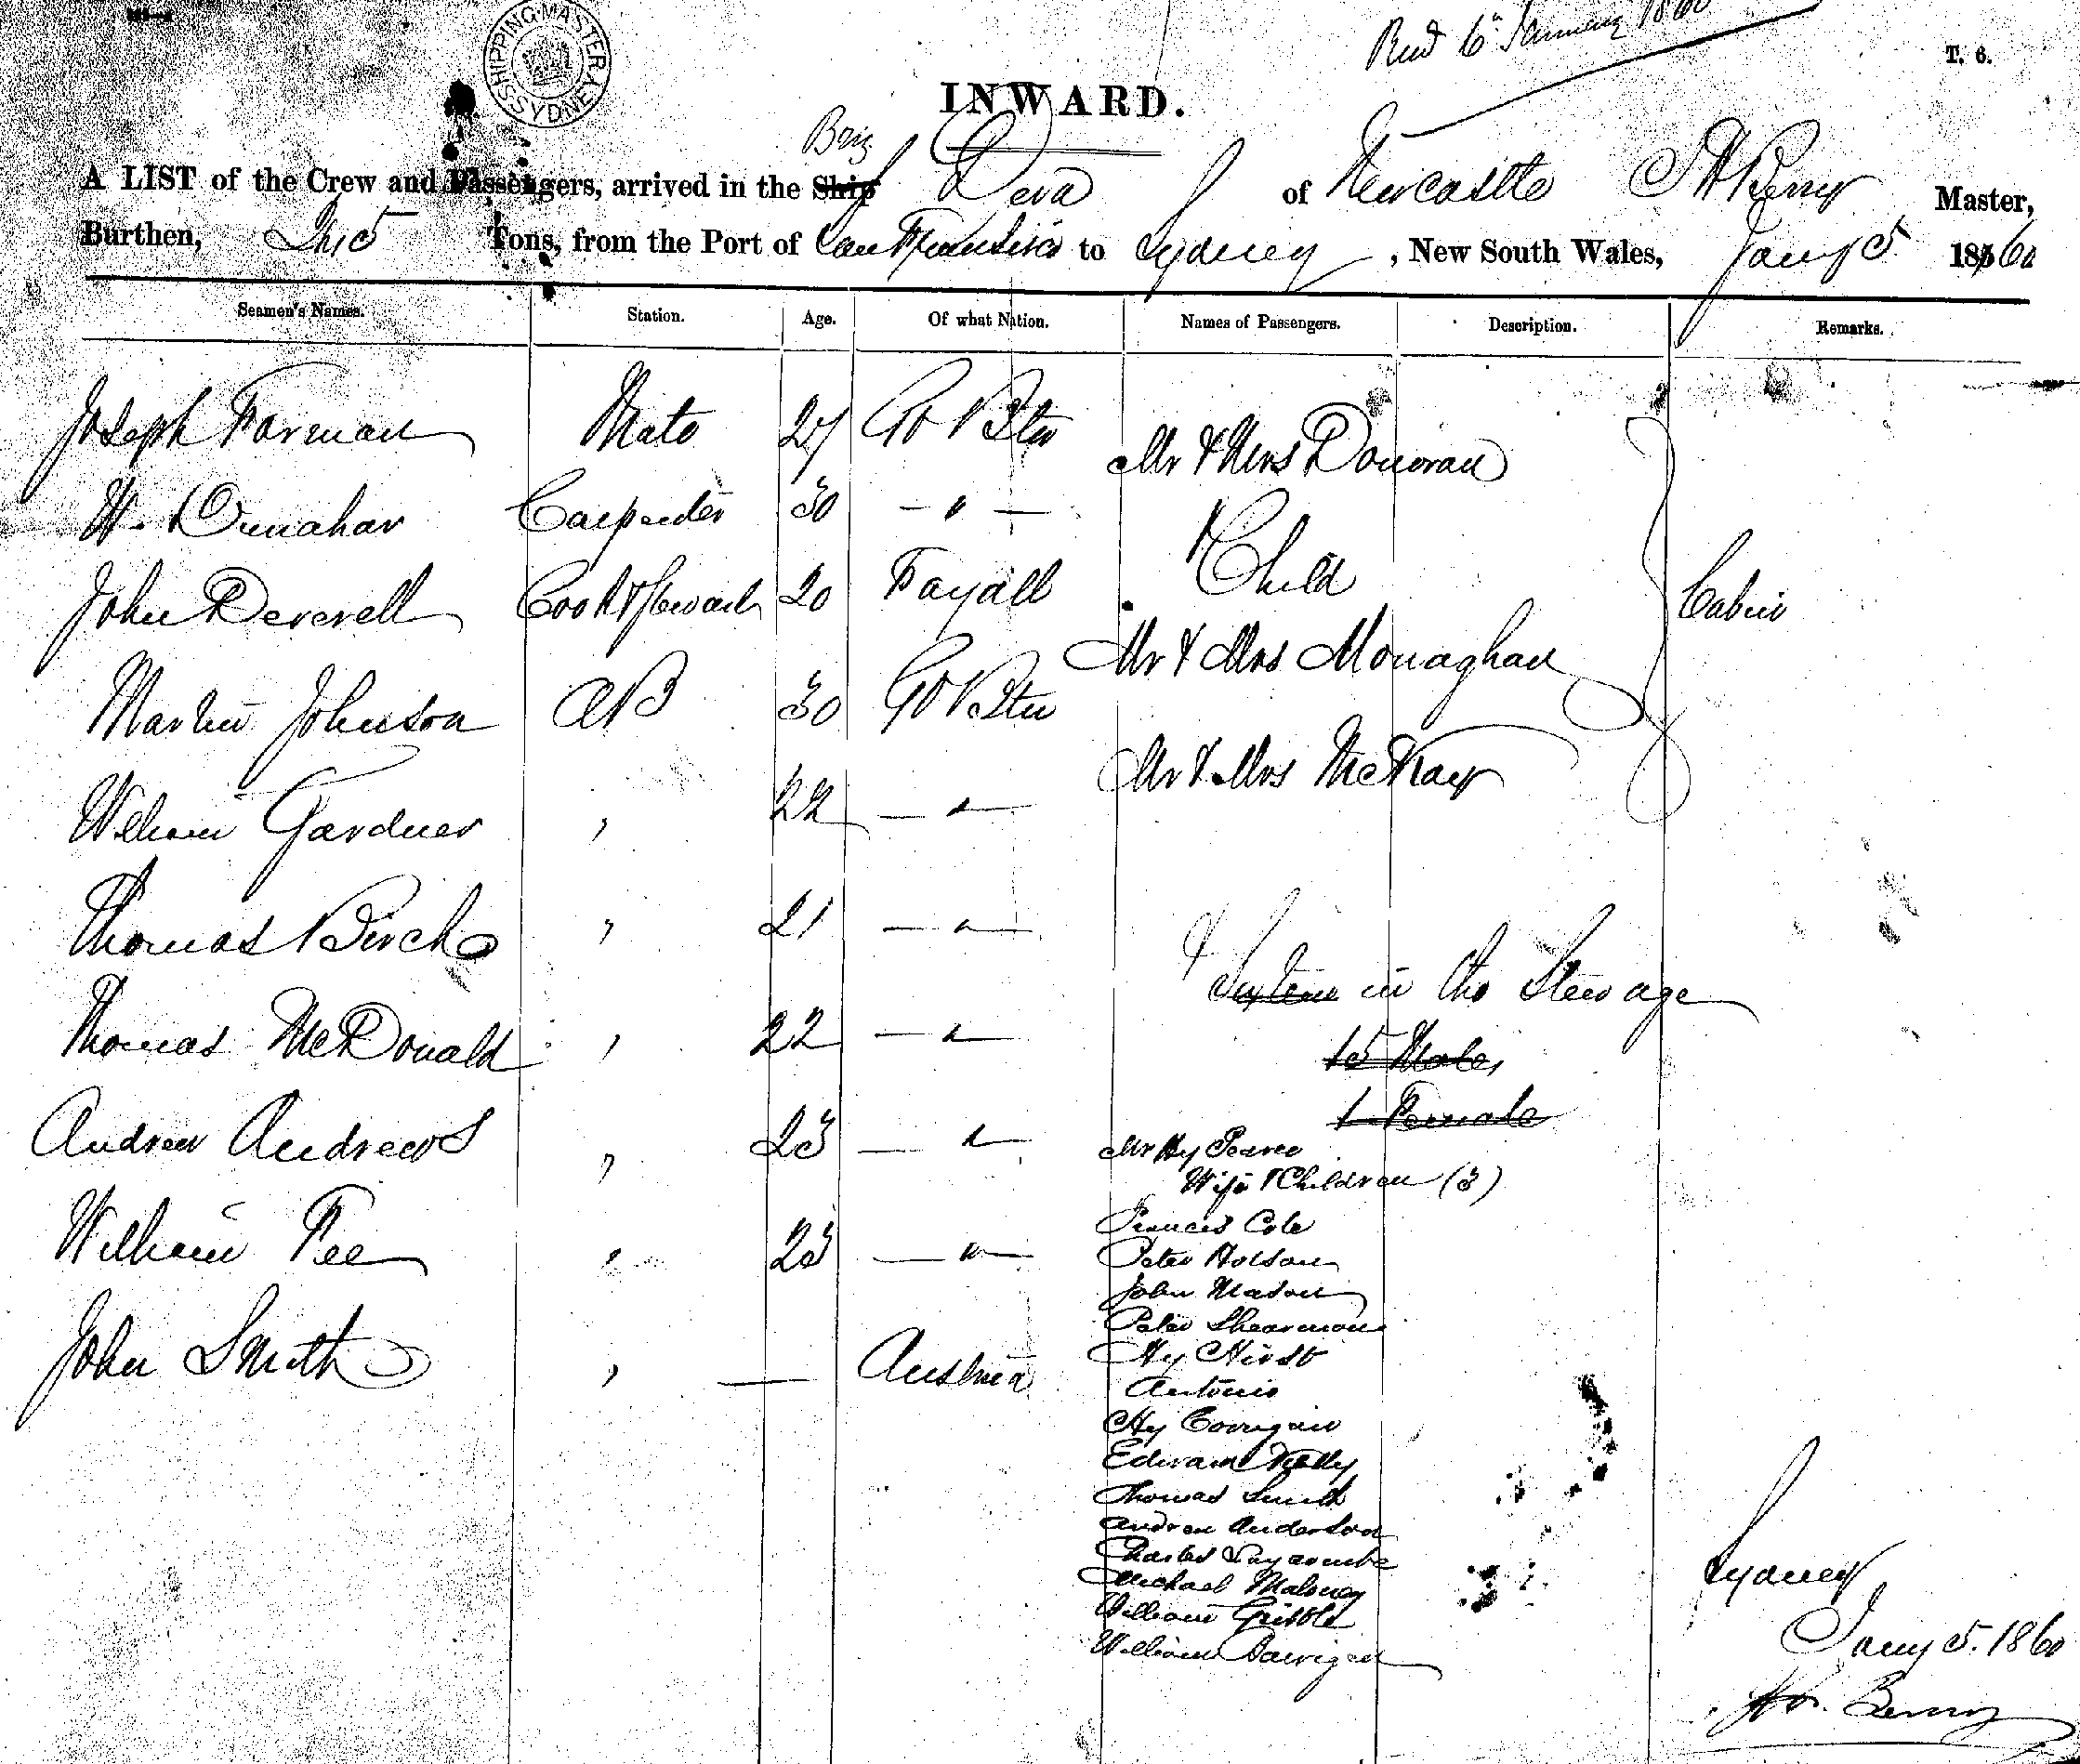 SHIPPING MASTER SYDNEY
6th January 1860
T. 6.
INWARD.
Brig
A LIST of the Crew and Passengers, arrived in the Ship Deva of Newcastle Berry Master,
Burthen, Tons, from the Port of San Fransisco to Sydney, New South Wales, Jany 5 1860
Seamen's Names. Station. Age. Of what Nation. Names of Passengers. Description. Remarks.
Joseph Farman Mate 27 Gt Btn
Mr & Mrs Donovan
W. Carpenter 30 — " —
& Child
John Deverell Cook & Steward 20 Fayall
Cabin
Mr & Mrs Monaghan
Martin Johnson AB 30 Gt Btn
Mr & Mrs McKay
William Gardner " 22 — " —
Thomas Birch " 21 — " —
& Sixteen in the Steerage
Thomas McDonald " 22 — " —
15 Males
1 Female
Andrew Andrews " 23 — " —
Mr Hy Pearce
Wife & Children (3)
Francis Cole
William Fee " 23 — " —
Peter
John Mason
Peter Shearman
John Smith " — Austria
Hy Hirst
Antonio
Hy Corrigan
Edward Kelly
Thomas Smith
Andrew Anderson
Charles
Michael Maloney
William Gribble
William
Sydney
Jany 5. 1860
Berry